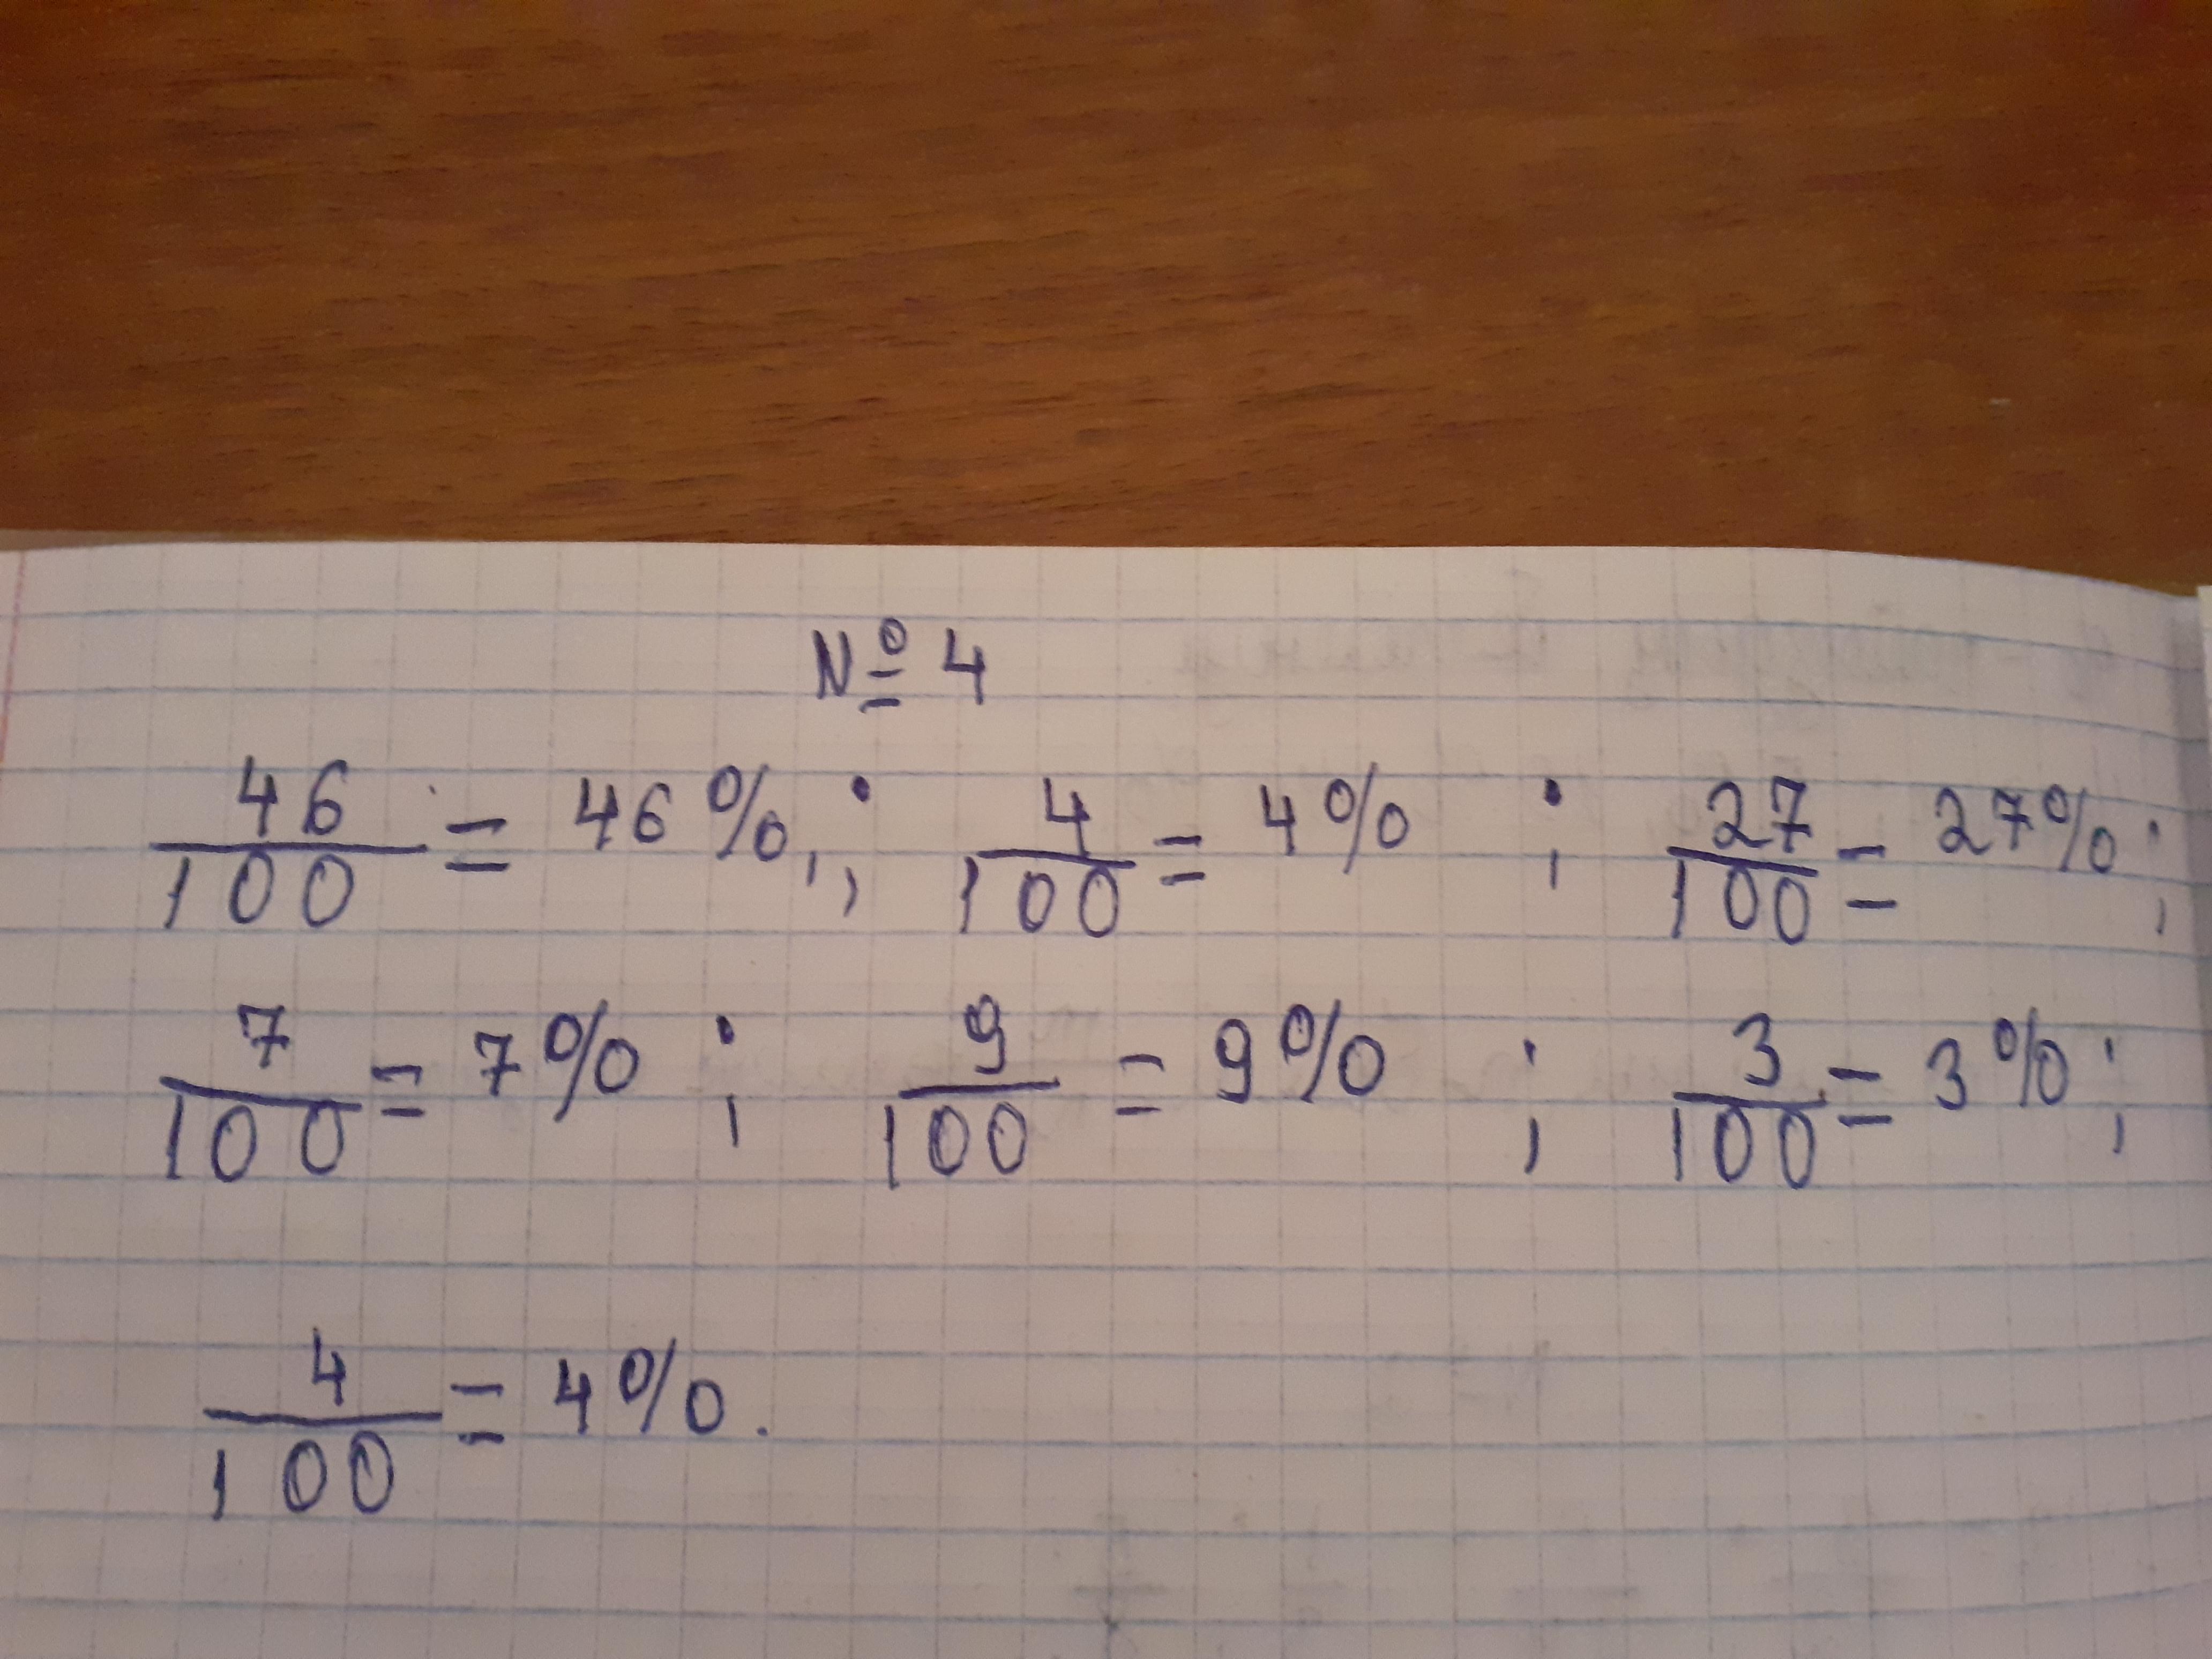 № 4
46/100 = 46%,; 4/100 = 4% ; 27/100 = 27%;
7/100 = 7% ; 9/100 = 9% ; 3/100 = 3%;
4/100 = 4%.